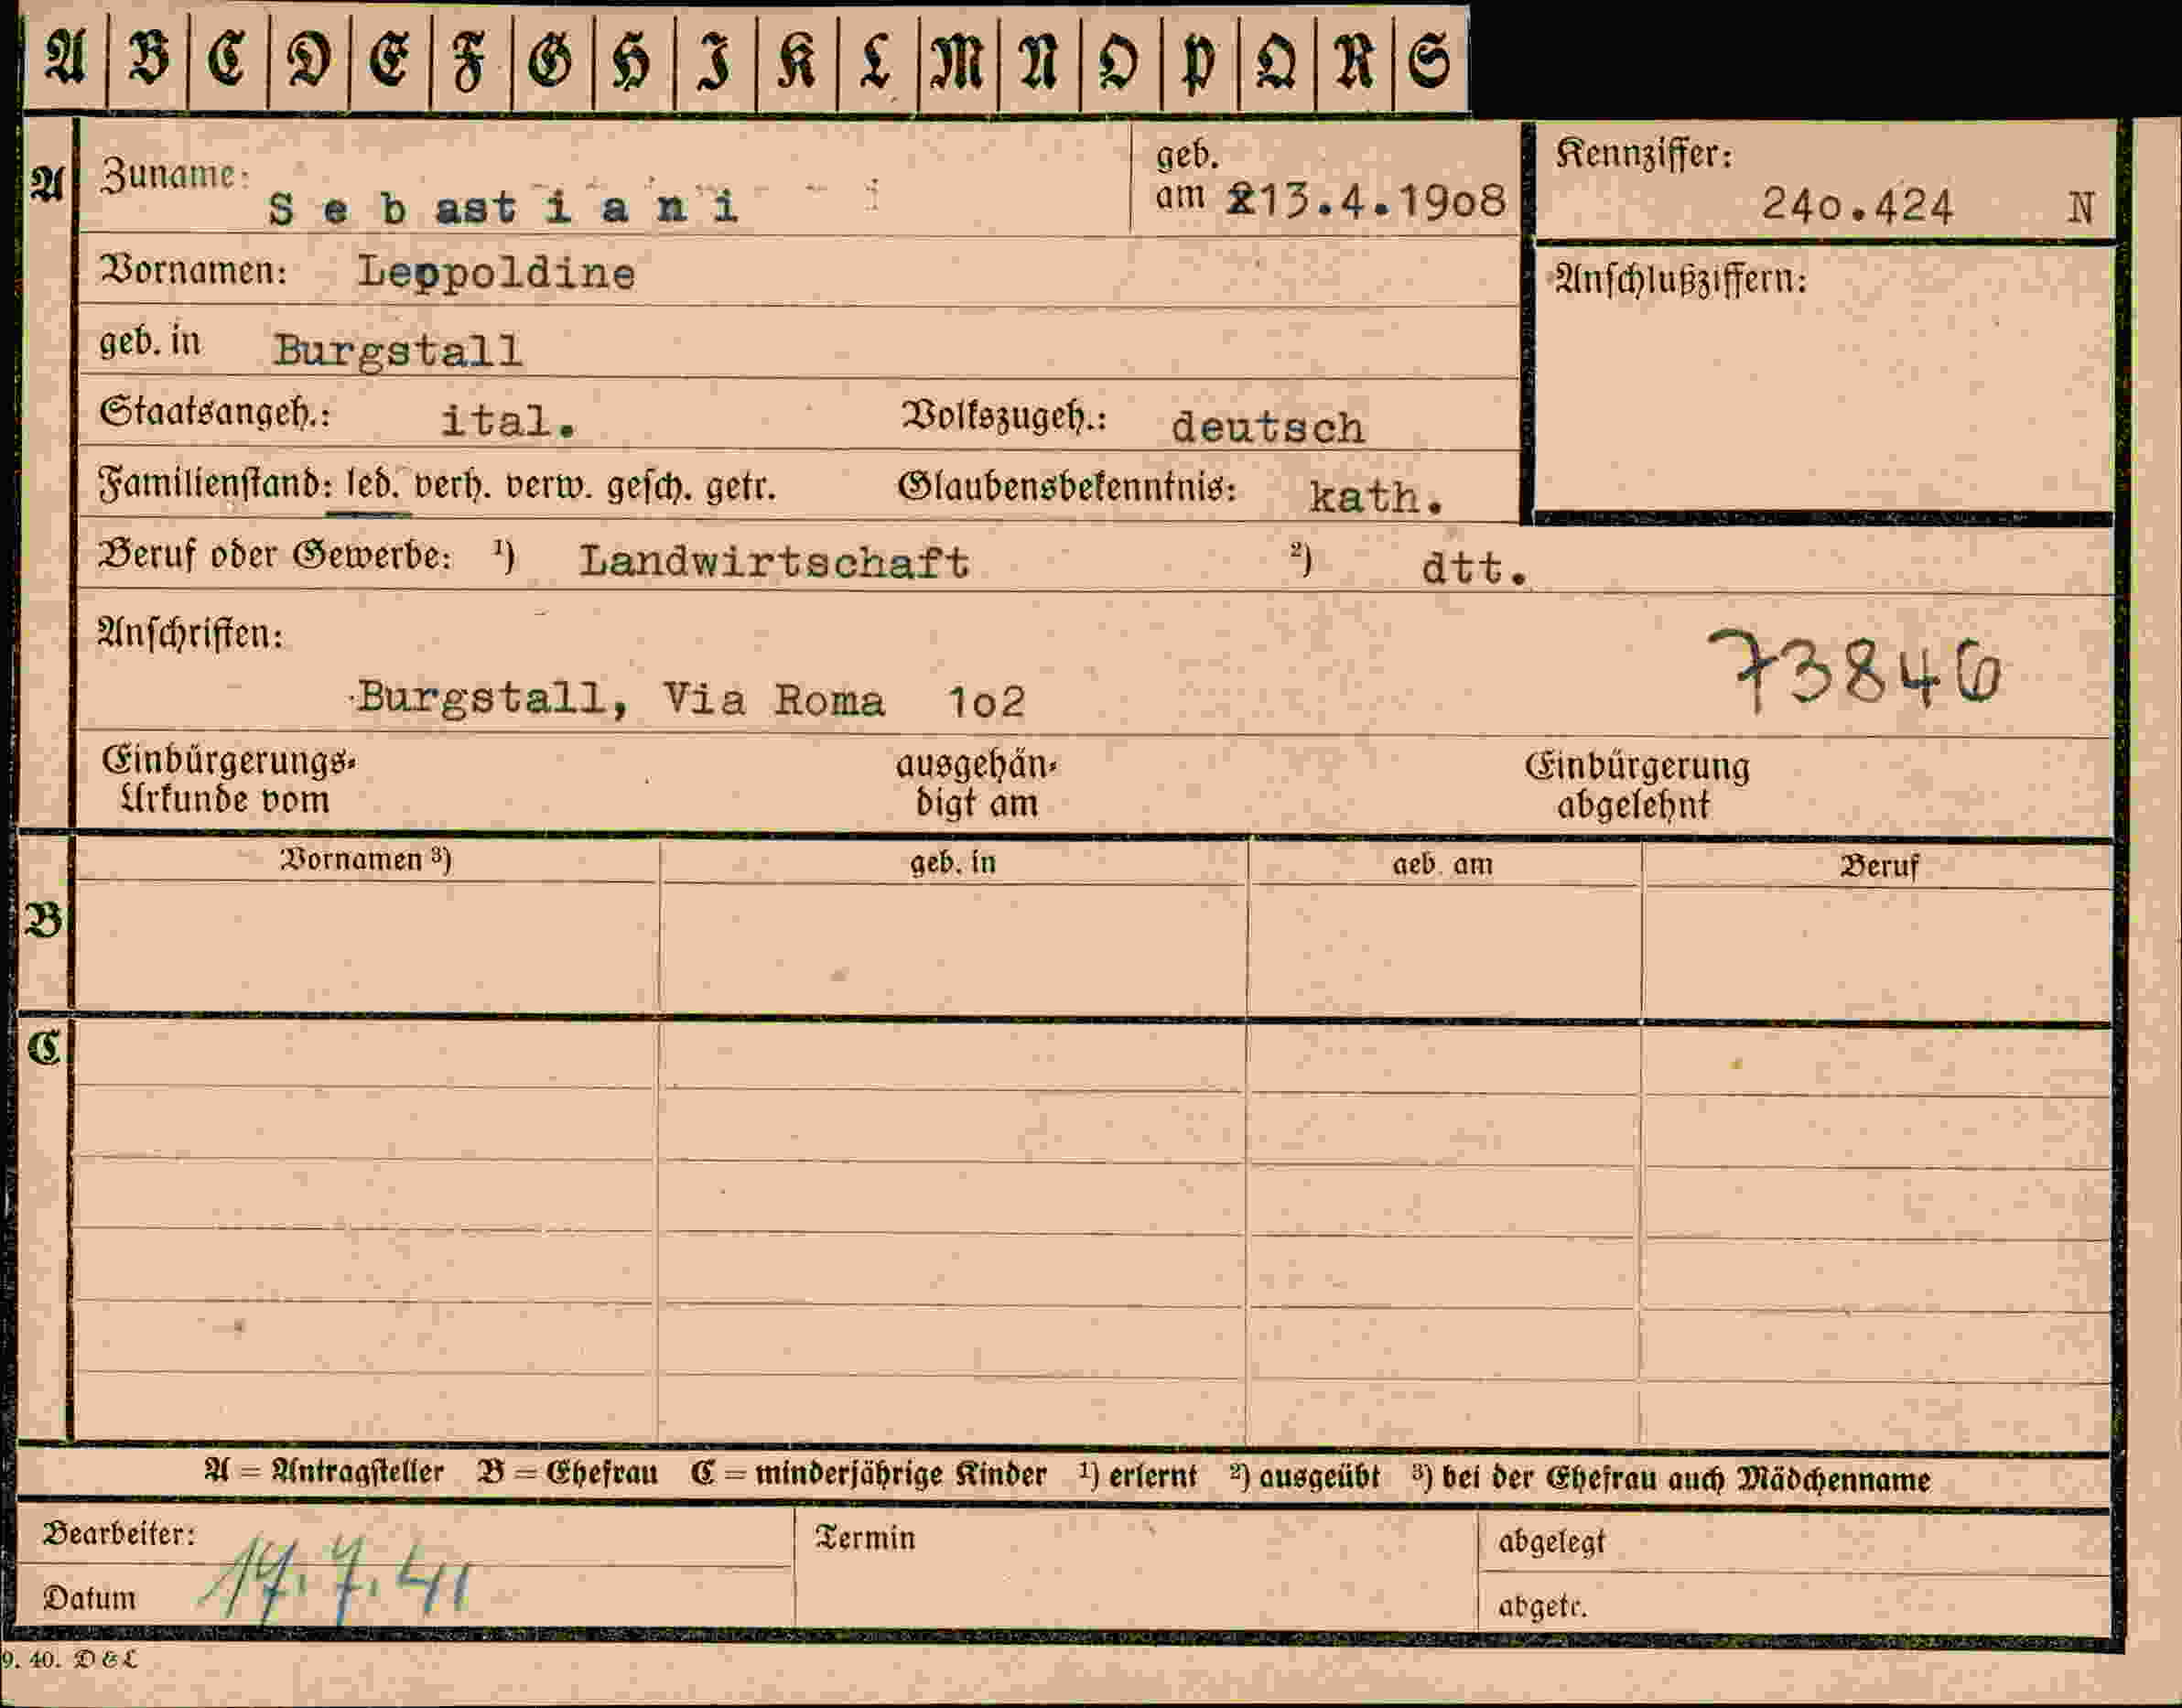 A B C D E F G H I K L M N O P Q R S
A Zuname: S e b ast i a n i geb. am 213.4.1908 Kennziffer: 240.424 N
Vornamen: Leppoldine Anschlußziffern:
geb. in Burgstall
Staatsangeh.: ital. Volkszugeh.: deutsch
Familienstand: led. verh. verw. gesch. getr. Glaubensbekenntnis: kath.
Beruf oder Gewerbe: ¹) Landwirtschaft ²) dtt.
Anschriften: 73846
Burgstall, Via Roma 1o2
Einbürgerungs- ausgehän- Einbürgerung
Urkunde vom digt am abgelehnt
Vornamen ³) geb. in geb. am Beruf
B
C
A = Antragsteller B = Ehefrau C = minderjährige Kinder ¹) erlernt ²) ausgeübt ³) bei der Ehefrau auch Mädchenname
Bearbeiter: Termin abgelegt
Datum 17.7.41 abgetr.
9. 40. D & L